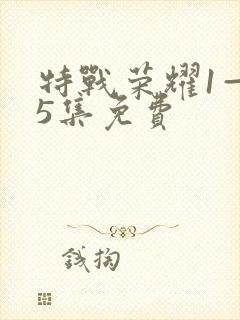 特戰榮耀1一
5集免費
錢掏